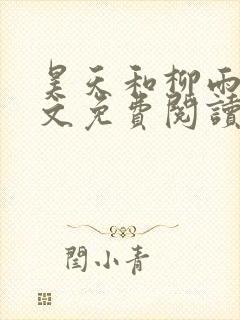 昊天和柳雨
文免費閱讀
閆小青